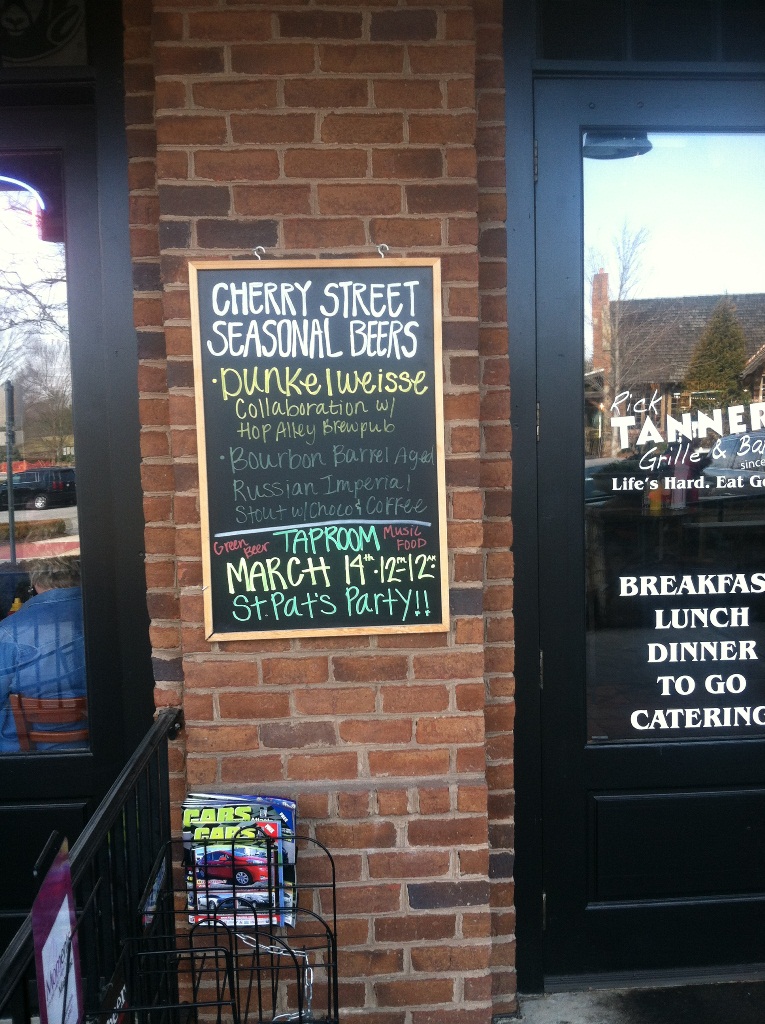 CHERRY STREET
SEASONAL BEERS
·Dunkelweisse
Collaboration w/
Hop Alley Brewpub
·Bourbon Barrel Aged
Russian Imperial
Stout w/Choco & Coffee
Green Beer TAPROOM Music FOOD
MARCH 14th·12PM-12AM
St. Pat's Party!!
Rick
TANNER
Grille & Ba
since
Life's Hard. Eat Go
BREAKFAS
LUNCH
DINNER
TO GO
CATERING
CARS
CARS